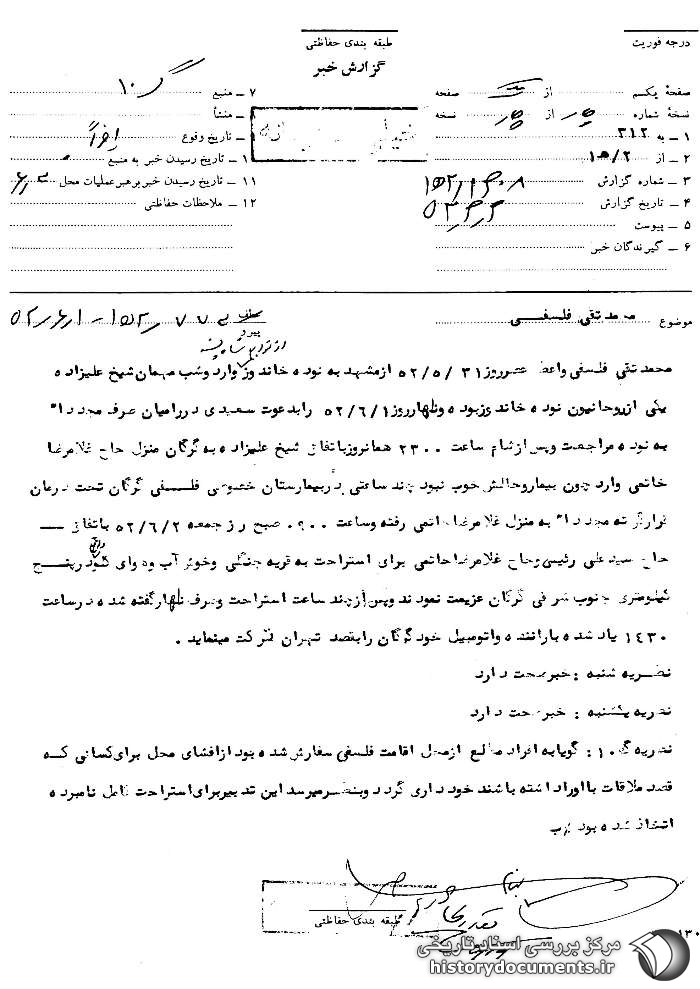 درجه فوریت
طبقه بندی حفاظتی
گزارش خبر
صفحهٔ یکم از صفحه
نسخهٔ شماره از نسخه
۱ – به ۳۱۲
۲ – از ۱۵/۲
۳ – شماره گزارش
۴ – تاریخ گزارش
۵ – پیوست
۶ – گیرندگان خبر
۷ – منبع
۸ – منشأ
۹ – تاریخ وقوع اخیراً
۱۰ – تاریخ رسیدن خبر به منبع
۱۱ – تاریخ رسیدن خبر برهبر عملیات محل
۱۲ – ملاحظات حفاظتی
موضوع محمد تقی فلسفی
محمد تقی فلسفی واعظ عصر روز ۵۲/۵/۳۱ از مشهد به نوده خاندوز وارد و شب مهمان شیخ علیزاده
یکی از روحانیون نوده خاندوز بوده و ظهار روز ۵۲/۶/۱ را بدعوت سعیدی در رامیان صرف مجدداً
به نوده مراجعت و پس از شام ساعت ۲۳۰۰ همانروز باتفاق شیخ علیزاده به گرگان منزل حاج غلامرضا
خاتمی وارد چون بیمار و حالش خوب نبود چند ساعتی در بیمارستان خصوصی فلسفی گرگان تحت درمان
قرار گرفته مجدداً به منزل غلامرضا خاتمی رفته و ساعت صبح روز جمعه ۵۲/۶/۲ باتفاق —
حاج سید علی رئیسی و حاج غلامرضا خاتمی برای استراحت به قریه جنگلی و خوش آب و هوای واقع در پنج
کیلومتری جنوب شرقی گرگان عزیمت نمودند و پس از چند ساعت استراحت و صرف نهار گفته شده در ساعت
۱۴۳۰ یاد شده با راننده و اتومبیل خود گرگان را بقصد تهران ترک مینماید .
نظریه شنبه : خبر صحت دارد
نظریه یکشنبه : خبر صحت دارد
نظریه : گویا به افراد مطلع از محل اقامت فلسفی سفارش شده بود از افشای محل برای کسانی که
قصد ملاقات با او را داشته باشند خود داری گردد و بنظر میرسد این تدبیر برای استراحت کامل نامبرده
اتخاذ شده بود
طبقه بندی حفاظتی
مرکز بررسی اسناد تاریخی
historydocuments.ir